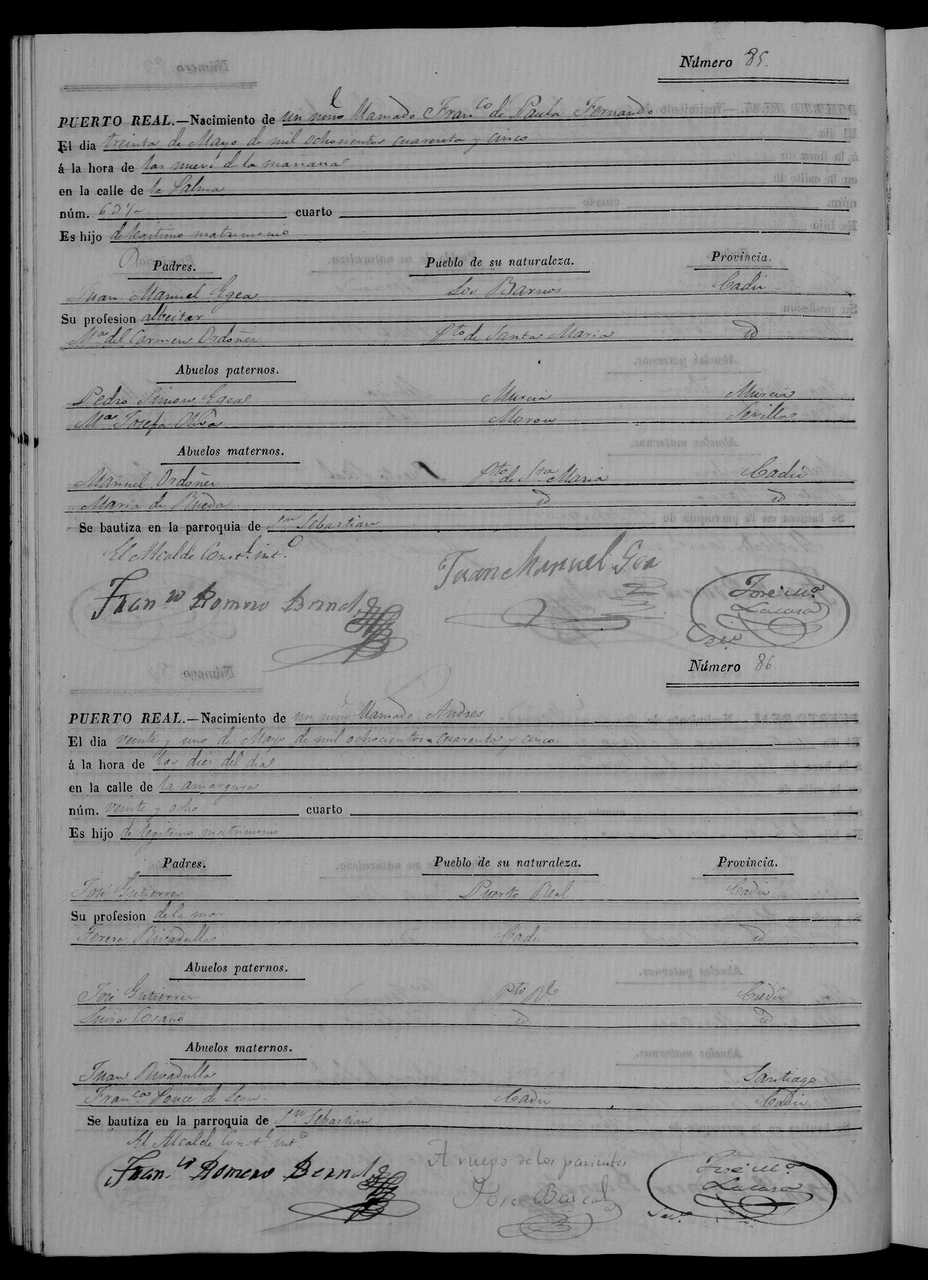 Número 85.
PUERTO REAL.—Nacimiento de un niño llamado Fran.co de Paula Fernando
El dia treinta de Mayo de mil ochocientos cuarenta y cinco
á la hora de las nueve de la mañana
en la calle de la Palma
núm. 63 cuarto
Es hijo de legitimo matrimonio
Padres. Pueblo de su naturaleza. Provincia.
Juan Manuel Egea Los Barrios Cadiz
Su profesion albeitar
M.a del Carmen Ordoñez P.to de Santa Maria id
Abuelos paternos.
Pedro Simon Egea Murcia Murcia
M.a Josefa Moron Sevilla
Abuelos maternos.
Manuel Ordoñez P.to de Sta Maria Cadiz
Maria de Rueda id id
Se bautiza en la parroquia de Sn Sebastian
El Alcalde Const.l int.o
Juan Manuel Gea
Fran.co Romero Bernal
José M.a
Lacasa
Número 86.
PUERTO REAL.—Nacimiento de un niño llamado Andres
El dia veinte y uno de Mayo de mil ochocientos cuarenta y cinco
á la hora de las diez del dia
en la calle de la amargura
núm. veinte y ocho cuarto
Es hijo de legitimo matrimonio
Padres. Pueblo de su naturaleza. Provincia.
José Gutierrez Puerto Real Cadiz
Su profesion de la mar
Teresa Rivadulla Cadiz id
Abuelos paternos.
José Gutierrez P.to Rl Cadiz
id id
Abuelos maternos.
Juan Rivadulla Santiago
Fran.ca Ponce de Leon Cadiz Cadiz
Se bautiza en la parroquia de Sn Sebastian
El Alcalde Const.l int.o
A ruego de los parientes
Fran.co Romero Bernal
José M.a
Lacasa